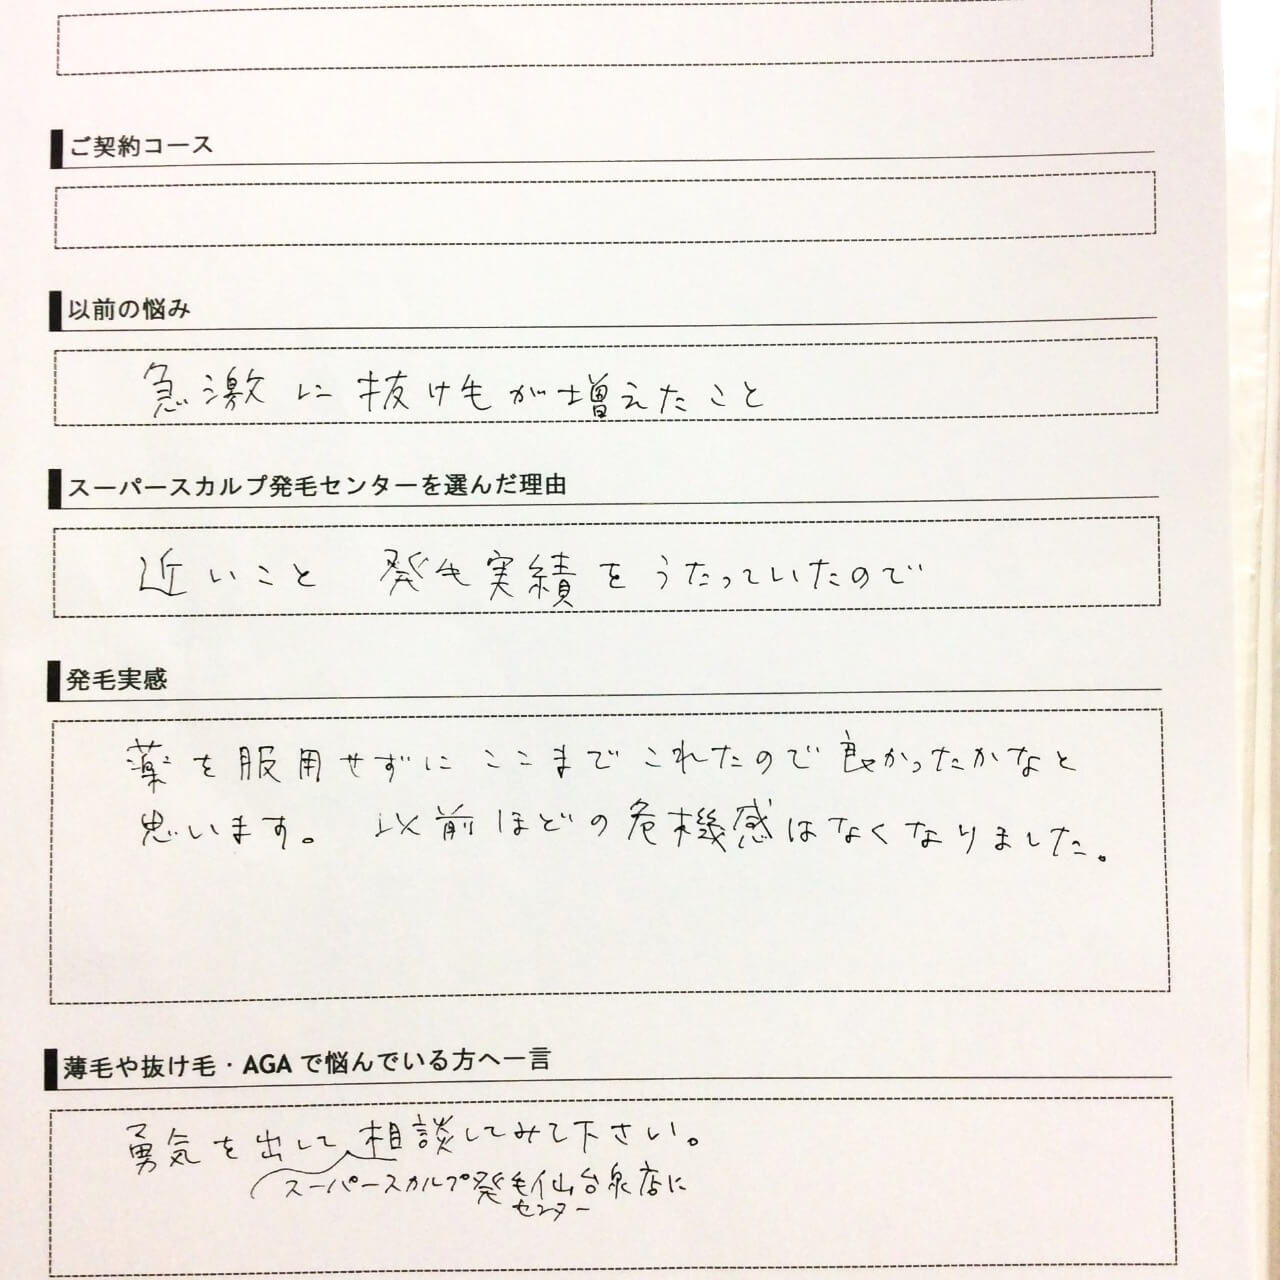 ご契約コース
以前の悩み
急激に抜け毛が増えたこと
スーパースカルプ発毛センターを選んだ理由
近いこと 発毛実績をうたっていたので
発毛実感
薬を服用せずにここまでこれたので良かったかなと
思います。 以前ほどの危機感はなくなりました。
薄毛や抜け毛・AGAで悩んでいる方へ一言
勇気を出して相談してみて下さい。
スーパースカルプ発毛仙台泉店に
センター